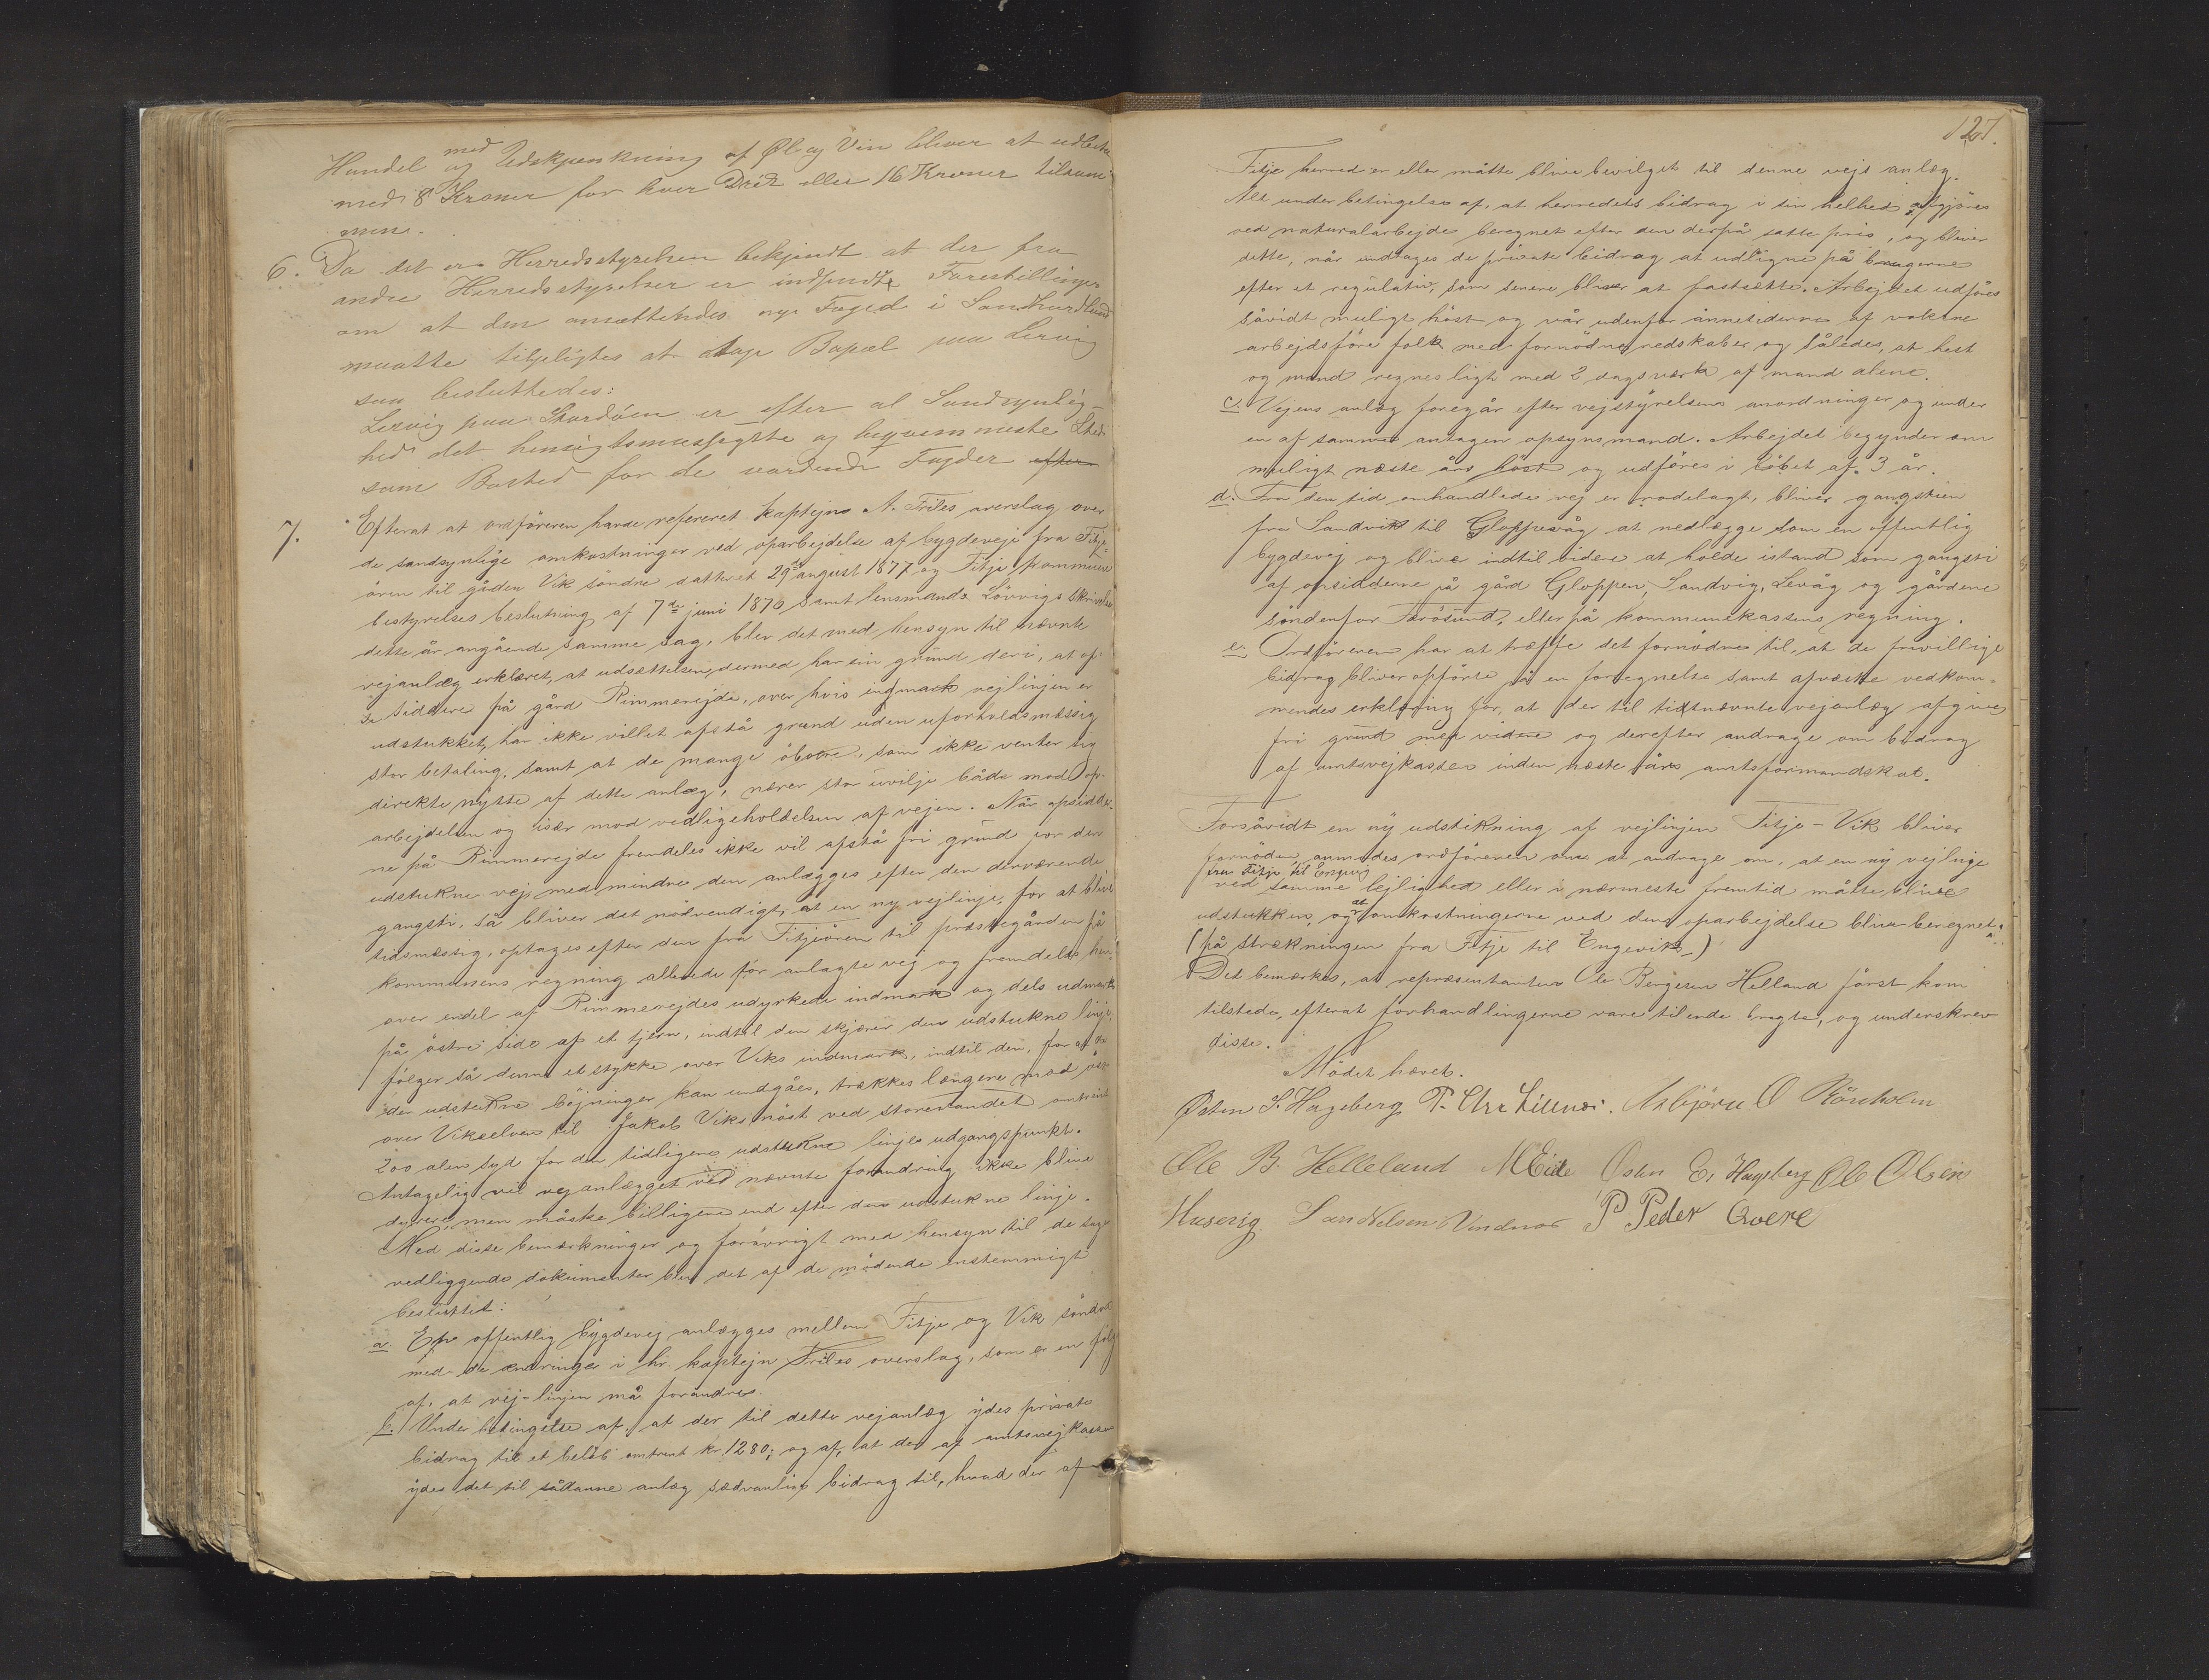 Handel med og Udskjænkning af Øl og Vin bliver at udlede
med 8 Kroner for hver Drik eller 16 Kroner tilsam-
men.
6. Da det er Herredsstyrelsen bekjendt at der fra
andre Herredsstyrelser er indsendte Forestillinger
om at den ansættendes nye Foged i Søndhordland
maatte tilpligtes at tage Bopæl paa Lervig
saa besluttedes:
Lervig paa Stordøen er efter al Sandsynlig-
hed det hensigtsmæssigste og bequemmeste Sted
som Bosted for de vordende Fogder efter
7. Efterat at ordføreren havde refereret kaptejn A. Friles overslag over
de sandsynlige omkostninger ved oparbejdelse af bygdeveje fra Fitje-
øren til gården Vik søndre dateret 29de august 1877 og Fitje kommune
bestyrelses beslutning af 7de juni 1870 samt lensmands Løvvigs skrivelse
dette år angående samme sag, blev det med hensyn til nævnte
vejanlæg erklæret, at udsættelsen dermed har sin grund deri, at op-
siddere på gård Rimmerejde, over hvis indmark vejlinjen er
udstukket, har ikke villet afstå grund uden uforholdsmæssig
stor betaling, samt at de mange øboere, som ikke venter sig
direkte nytte af dette anlæg, nærer stor uvilje både mod op-
arbejdelsen og især mod vedligeholdelsen af vejen. Når opsidder-
ne på Rimmerejde fremdeles ikke vil afstå fri grund for den
udstukne vej, med mindre den anlægges efter den derværende
gangsti, så bliver det nødvendigt, at en ny vejlinje, for at blive
tidsmæssig, optages efter den fra Fitjeøren til præstegården på
kommunens regning allerede før anlagte vej og fremdeles hen-
over endel af Rimmerejdes udyrkede indmark og dels udmark
på østre side af et tjern, indtil den skjærer den udstukne linje,
følger så denne et stykke over Viks indmark, indtil den, for at de
der udstukne bøjninger kan undgåes, trækkes længere mod øst
over Vikselven til Jakob Viks nøst ved storestandet omtrent
200 alen syd for den tidligere udstukne linjes udgangspunkt.
Antagelig vil vejanlægget ved nævnte forandring ikke blive
dyrere, men måske billigere end efter den udstukne linje.
Med disse bemærkninger og forøvrigt med hensyn til de sagen
vedliggende dokumenter blev det af de mødende enstemmigt
besluttet:
a. En offentlig bygdevej anlægges mellem Fitje og Vik søndre
med de ændringer i hr. kaptejn Friles overslag, som er en følge
af, at vej-linjen må forandres.
b. Under betingelse af, at der til dette vejanlæg ydes private
bidrag til et beløb omtrent kr. 1280; og af, at der af amtsvejkassen
ydes det til sådanne anlæg sædvanlige bidrag til, hvad der af
127.
Fitje herred er eller måtte blive bevilget til denne vejs anlæg.
Alt under betingelse af, at herredets bidrag i sin helhed afgjøres
ved naturalarbejde beregnet efter den derpå satte pris, og bliver
dette, når undtages de private bidrag at udligne på brugerne
efter et regulativ, som senere bliver at fastsætte. Arbejdet udføres
såvidt muligt høst og vår udenfor ånnetiderne af voksne
arbejdsføre folk med fornødne redskaber og således, at hest
og mand regnes ligt med 2 dagsværk af mand alene.
c. Vejens anlæg foregår efter vejstyrelsens anordninger og under
en af samme antagen opsynsmand. Arbejdet begynder om
muligt næste års høst og udføres i løbet af 3 år.
d. Fra den tid omhandlede vej er rodelagt, bliver gangstien
fra Sandvik til Gloppevåg at nedlægge som en offentlig
bygdevej og blive indtil videre at holde istand som gangsti
af opsidderne på gård Gloppen, Sandvig, Levåg og gårdene
søndenfor Færøsund, eller på kommunekassens regning.
e. Ordføreren har at træffe det fornødne til, at de frivillige
bidrag bliver opførte på en fortegnelse samt afæske vedkom-
mendes erklæring for, at der til tidtnævnte vejanlæg afgives
fri grund med videre og derefter andrage om bidrag
af amtsvejkassen inden næste års amtsformandskab.
Forsåvidt en ny udstikning af vejlinjen Fitje-Vik bliver
fornøden, anmodes ordføreren om at andrage om, at en ny vejlinje
fra Fitje til Engevig
ved samme lejlighed eller i nærmeste fremtid måtte blive
udstukken, og at omkostningerne ved dens oparbejdelse bliver beregnet
(på strækningen fra Fitje til Engevik.)
Det bemærkes, at repræsentanten Ole Bergesen Helland først kom
tilstede, efterat forhandlingerne vare tilende bragte, og underskrev
disse.
Mødet hævet.
Østen S. Hageberg P. Chr Asbjørn O
Ole B. Helleland M Eide Østen E. Hageberg Ole Olsen
Husevig Nelsen P Peder Overe